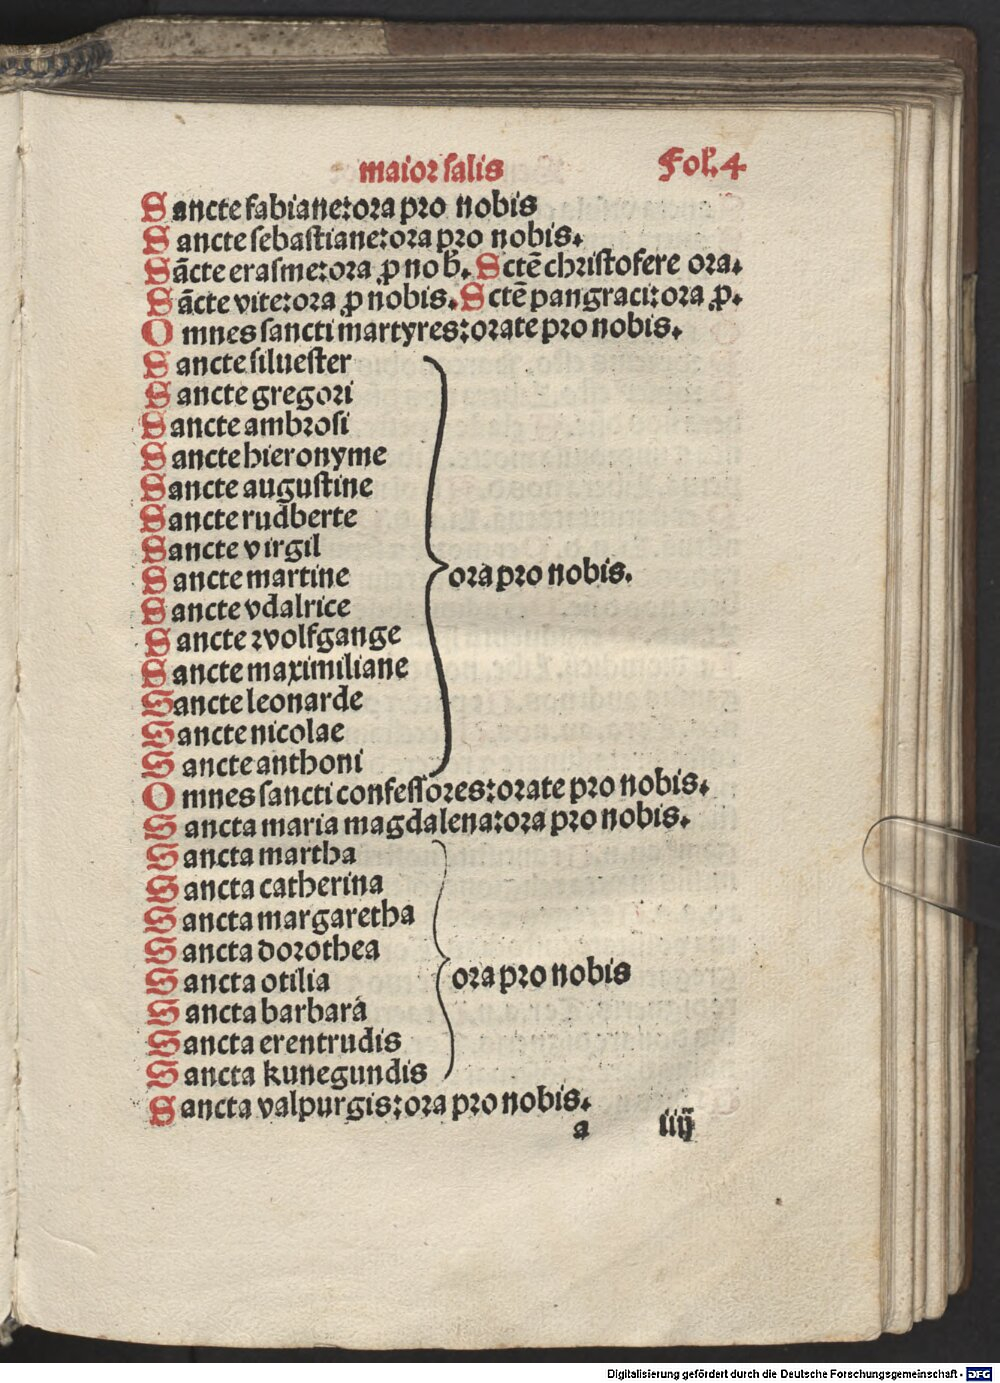 maior salis Fol. 4
Sancte fabiane: ora pro nobis
Sancte sebastiane: ora pro nobis.
Sācte erasme: ora ꝓ nob̄. Sctē christofere ora.
Sācte vite: ora ꝓ nobis. Sctē pangraci: ora ꝓ.
Omnes sancti martyres: orate pro nobis.
Sancte siluester
Sancte gregori
Sancte ambrosi
Sancte hieronyme
Sancte augustine
Sancte rudberte
Sancte virgil
Sancte martine
ora pro nobis.
Sancte vdalrice
Sancte wolfgange
Sancte maximiliane
Sancte leonarde
Sancte nicolae
Sancte anthoni
Omnes sancti confessores: orate pro nobis.
Sancta maria magdalena: ora pro nobis.
Sancta martha
Sancta catherina
Sancta margaretha
Sancta dorothea
Sancta otilia
ora pro nobis
Sancta barbara
Sancta erentrudis
Sancta kunegundis
Sancta valpurgis: ora pro nobis.
a iiij
Digitalisierung gefördert durch die Deutsche Forschungsgemeinschaft - DFG